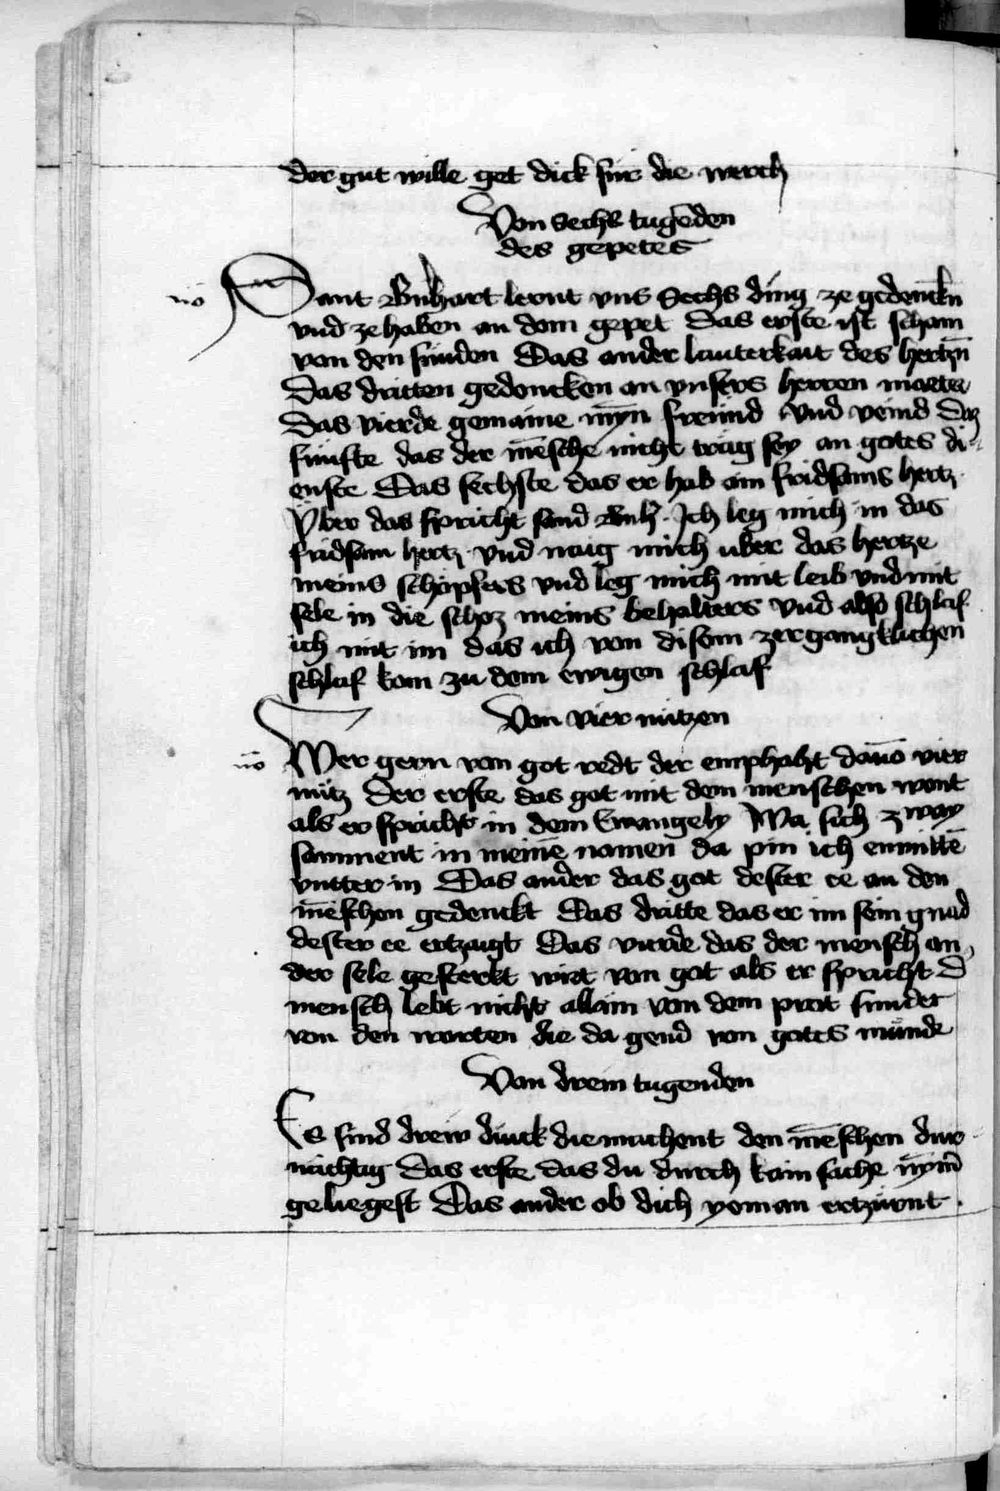 der gut wille get dick für die werch
Von sechs tugēden
des gepetes
no Sant Bnhart lernt vns Sechs ding ze gedenckn
vnd ze haben an dem gepet Das erste ist scham
von den sünden Das ander lauterkait des hertzn̄
Das dritten gedencken an vnsers herren marter
Das vierde gemaine mȳn freünd vnd veind Daz
fünfte das der mēsche nicht träg sey an gotes di-
enste Das sechste das er hab ain fridsams hertz
Vber das spricht sand Bnh. Ich leg mich in das
fridsam hertz vnd naig mich uber das hertze
meins schöpfers vnd leg mich mit leib vnd mit
sele in die schoz meins behalters vnd also schlaf
ich mit im das ich von disem zergangklichen
schlaf kom zu dem ewigen schlaf
Von vier nützen
no Wer gern von got redt der emphaht dauō vier
nütz Der erste das got mit dem menschen wont
als er spricht in dem Ewangely Wa sich zway
samment in meinē namen da pin ich enmittē
vnter in Das ander das got dester ee an den
mēschen gedenckt Das dritte das er im sein gnad
dester ee ertzaigt Das vierde das der mensch an
der sele gesterkt wirt von got als er spricht d'
mensch lebt nicht allain von dem prot sunder
von den worten die da gend von gotes munde
Von drein tugenden
Es sind drew dinck die machent den mēschen dur
nächtig Das erste das du durch kain sache nȳm̄
geliegest Das ander ob dich yeman ertzürnt